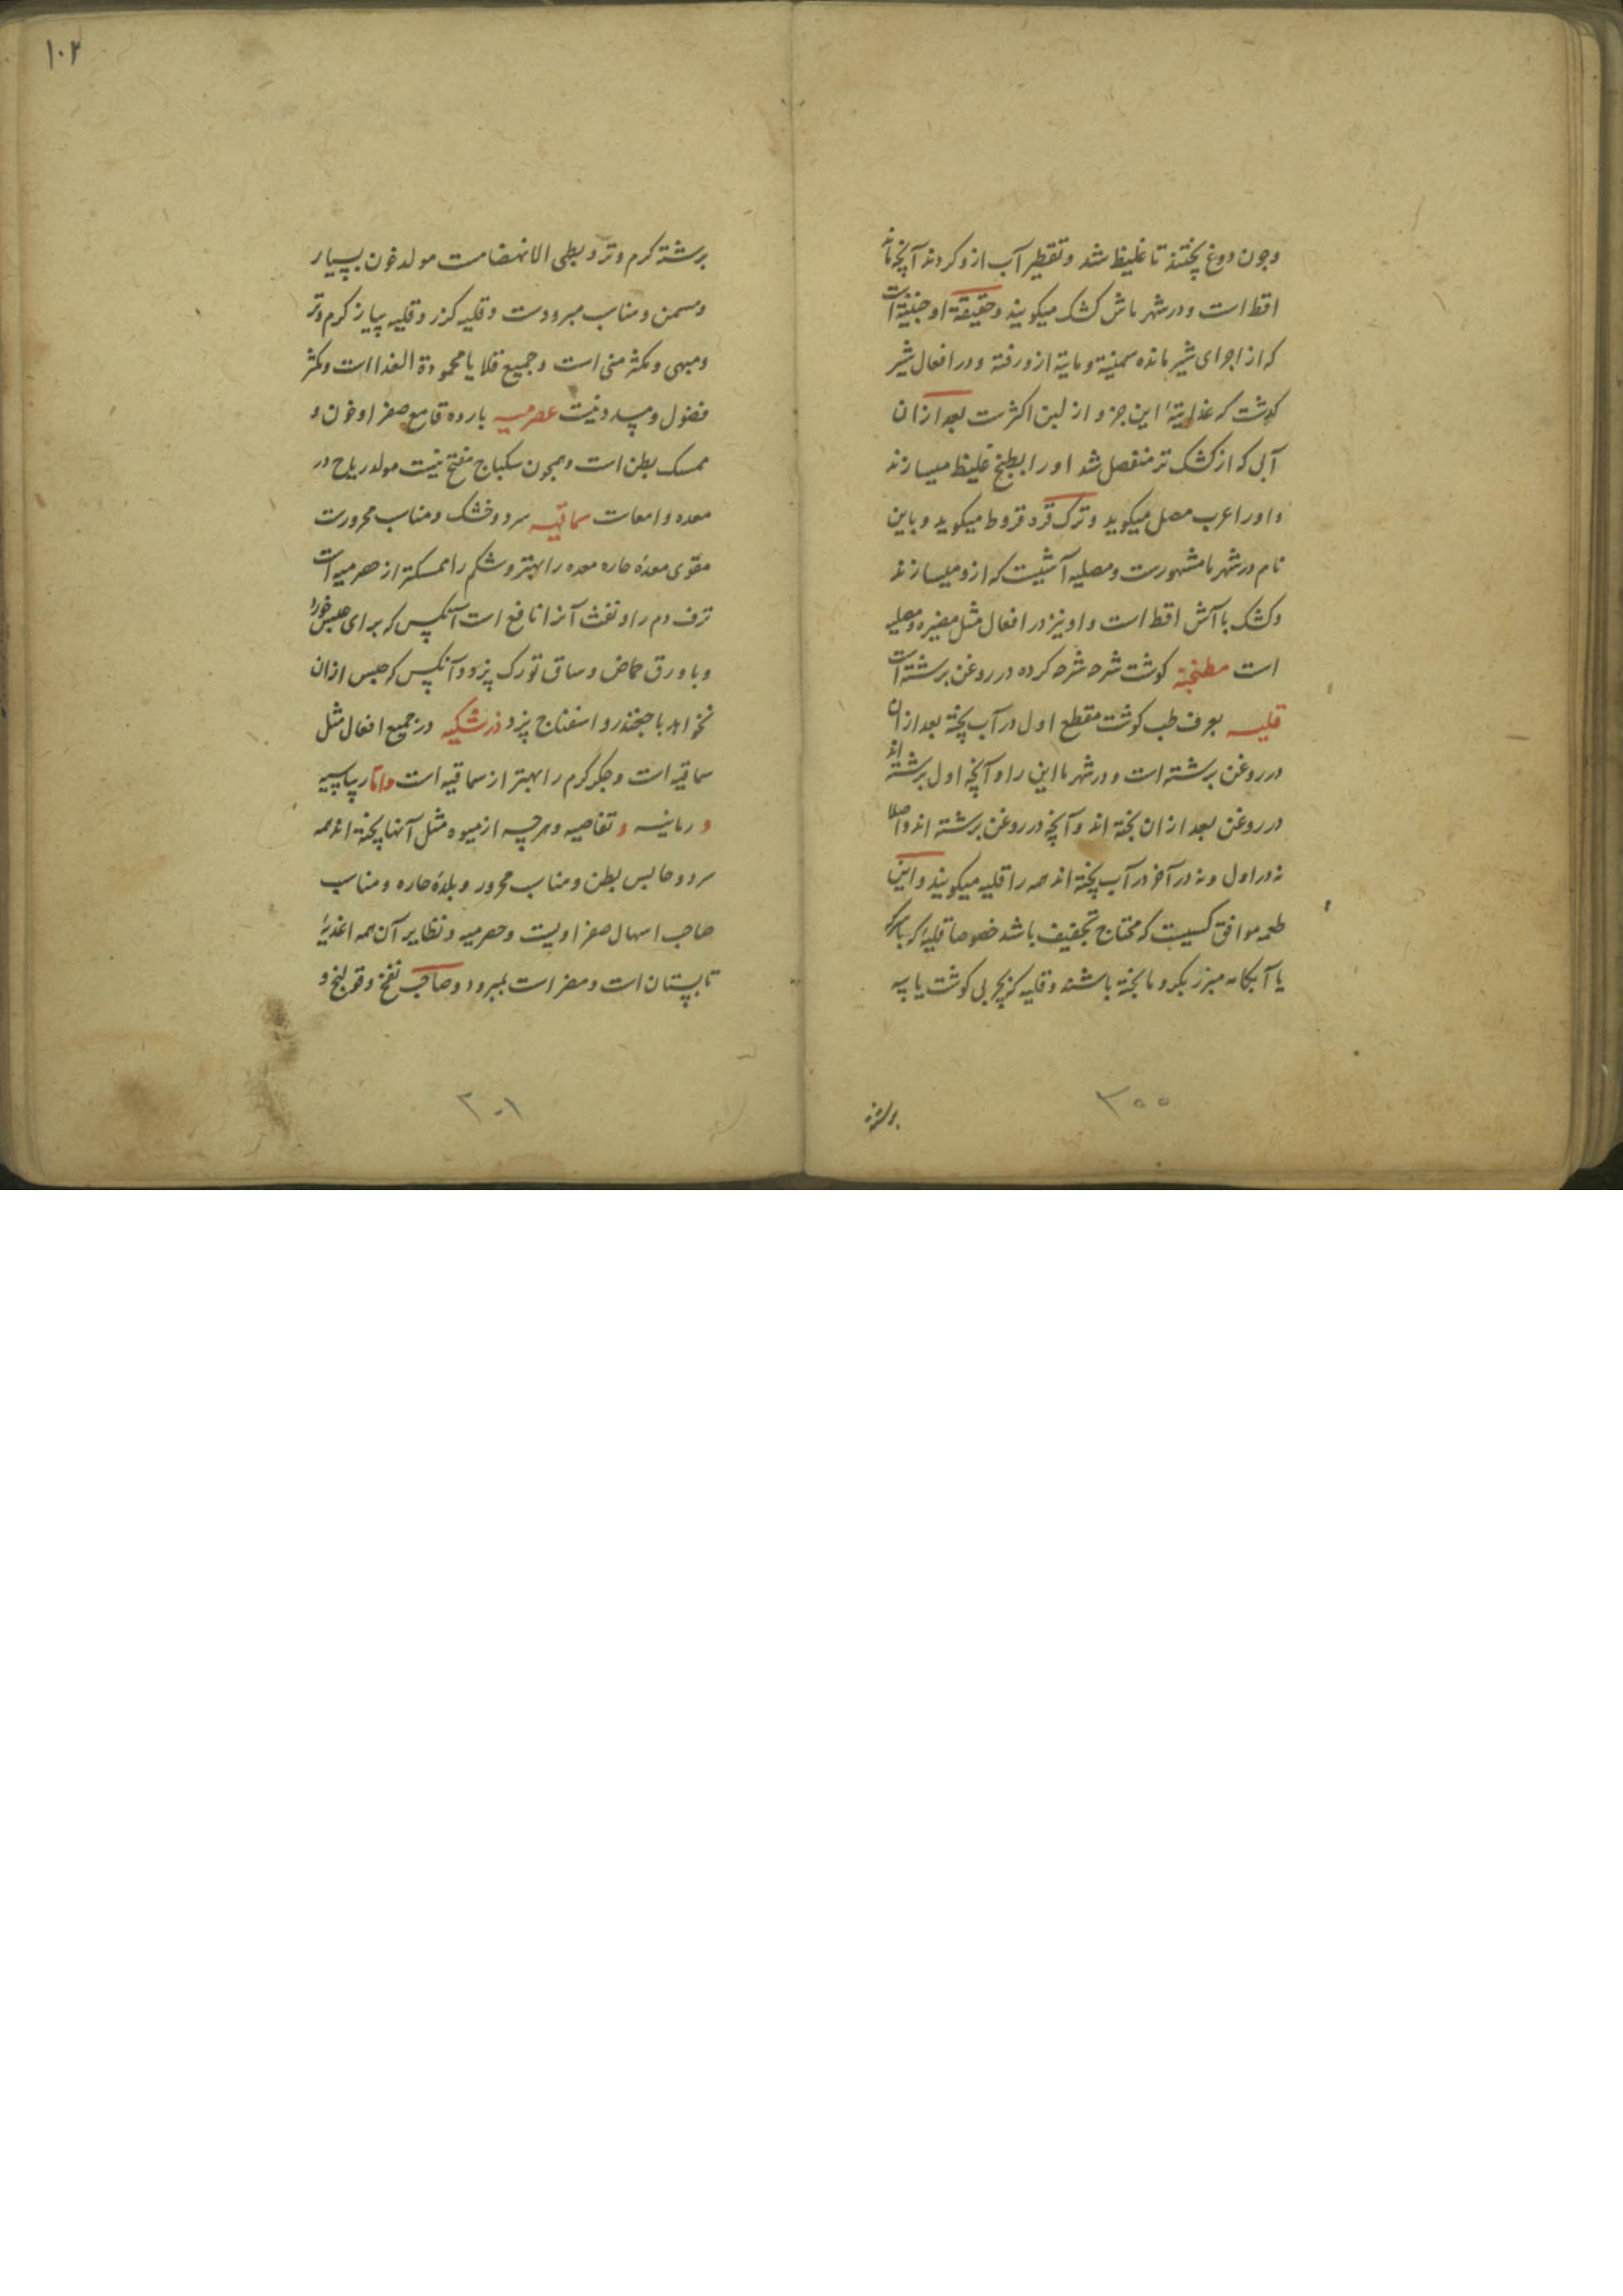 وچون دوغ پختند تا غلیظ شد و تقطیر آب ازو کردند آنچه ماند
اقط است و در شهر ماش کشک میکویند و حقیقة او جبنیة است
که از اجرای شیر مانده سمنیة و مایة ازو رفته و در افعال شیر
کوشت که غذایتهٔ این جزو از لبن اکثرست بعد ازان
آبی که از کشک تر منفصل شد او را بطبخ غلیظ میسازند
و او را عرب مصل میکوید و ترک قره قروط میکوید و باین
نام در شهر ما مشهورست و مصلیه آشیست که ازو میسازند
و کشک با آش اقط است و او نیز در افعال مثل مضیره و مصلیه
است مطنجنة کوشت شرحه شرحه کرده در روغن برشته است
قلیه بعرف طب کوشت مقطع اول در آب پخته بعد ازان
در روغن برشته است و در شهر ما این را و آنچه اول برشته اند
در روغن بعد ازان پخته اند و آنچه در روغن برشته اند و اصلا
نه در اول و نه در آخر در آب پخته اند همه را قلیه میکویند و این
طعمه موافق کسیست که محتاج تجفیف باشد خصوصا قلیهٔ که بسرکه
یا آبکامه مبزر بکرویا پخته باشند و قلیه کزبچربی کوشت یا پیه
برشته
۲۰۰
۱۰۲
برشته کرم و تر و بطی الانهضامست مولد خون بسیار
و مسمن و مناسب مبرودست و قلیه کزر و قلیه پیاز کرم و تر
و مبهی و مکثر منی است و جمیع قلایا محمودة الغذا است و مکثر
فضول و مسدد نیست حصرمیه بارده قامع صفرا و خون و
ممسک بطن است و همچون سکباج مفتح نیست مولد ریاح در
معده و امعاست سماقیه سرد و خشک و مناسب محرورست
مقوی معدهٔ حاره معده را بهتر و شکم را ممسکتر از حصرمیه است
نزف دم را و نفث آنرا نافع است آنکس که برای حبس خورد
و با ورق حماض و ساق تورک پزد و آنکس که حبس ازان
نخواهد با چغندر و اسفناج پزد زرشکیه در جمیع افعال مثل
سماقیه است و جکر کرم را بهتر از سماقیه است و اما ریباسیه
و رمانیه و تفاحیه و هرچه از میوه مثل آنها پخته اند همه
سرد و حابس بطن و مناسب محرور و بلدهٔ حاره و مناسب
صاحب اسهال صفراویست و حصرمیه و نظایر آن همه اغذیهٔ
تابستان است و مضر است بمبرود و صاحب نفخ و قولنج و
۲۰۱